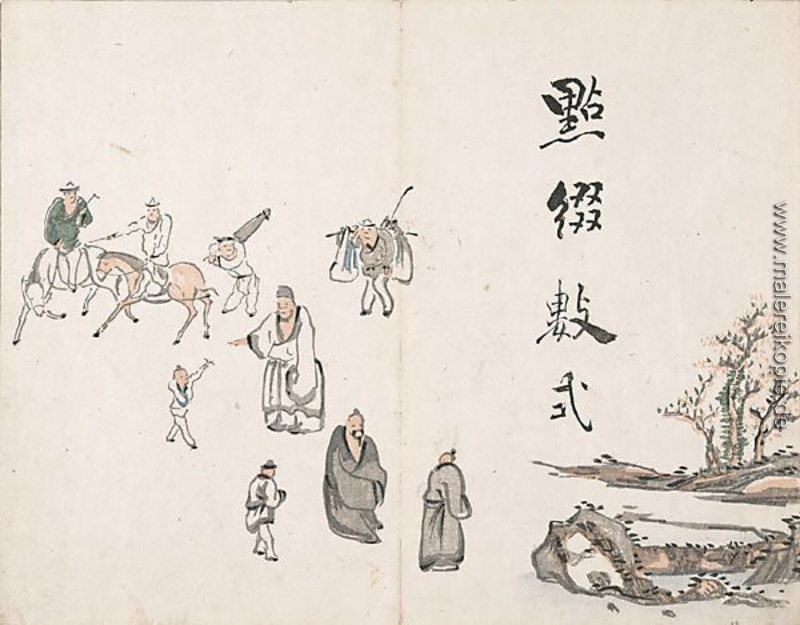 點綴數式
www.malereikopie.de